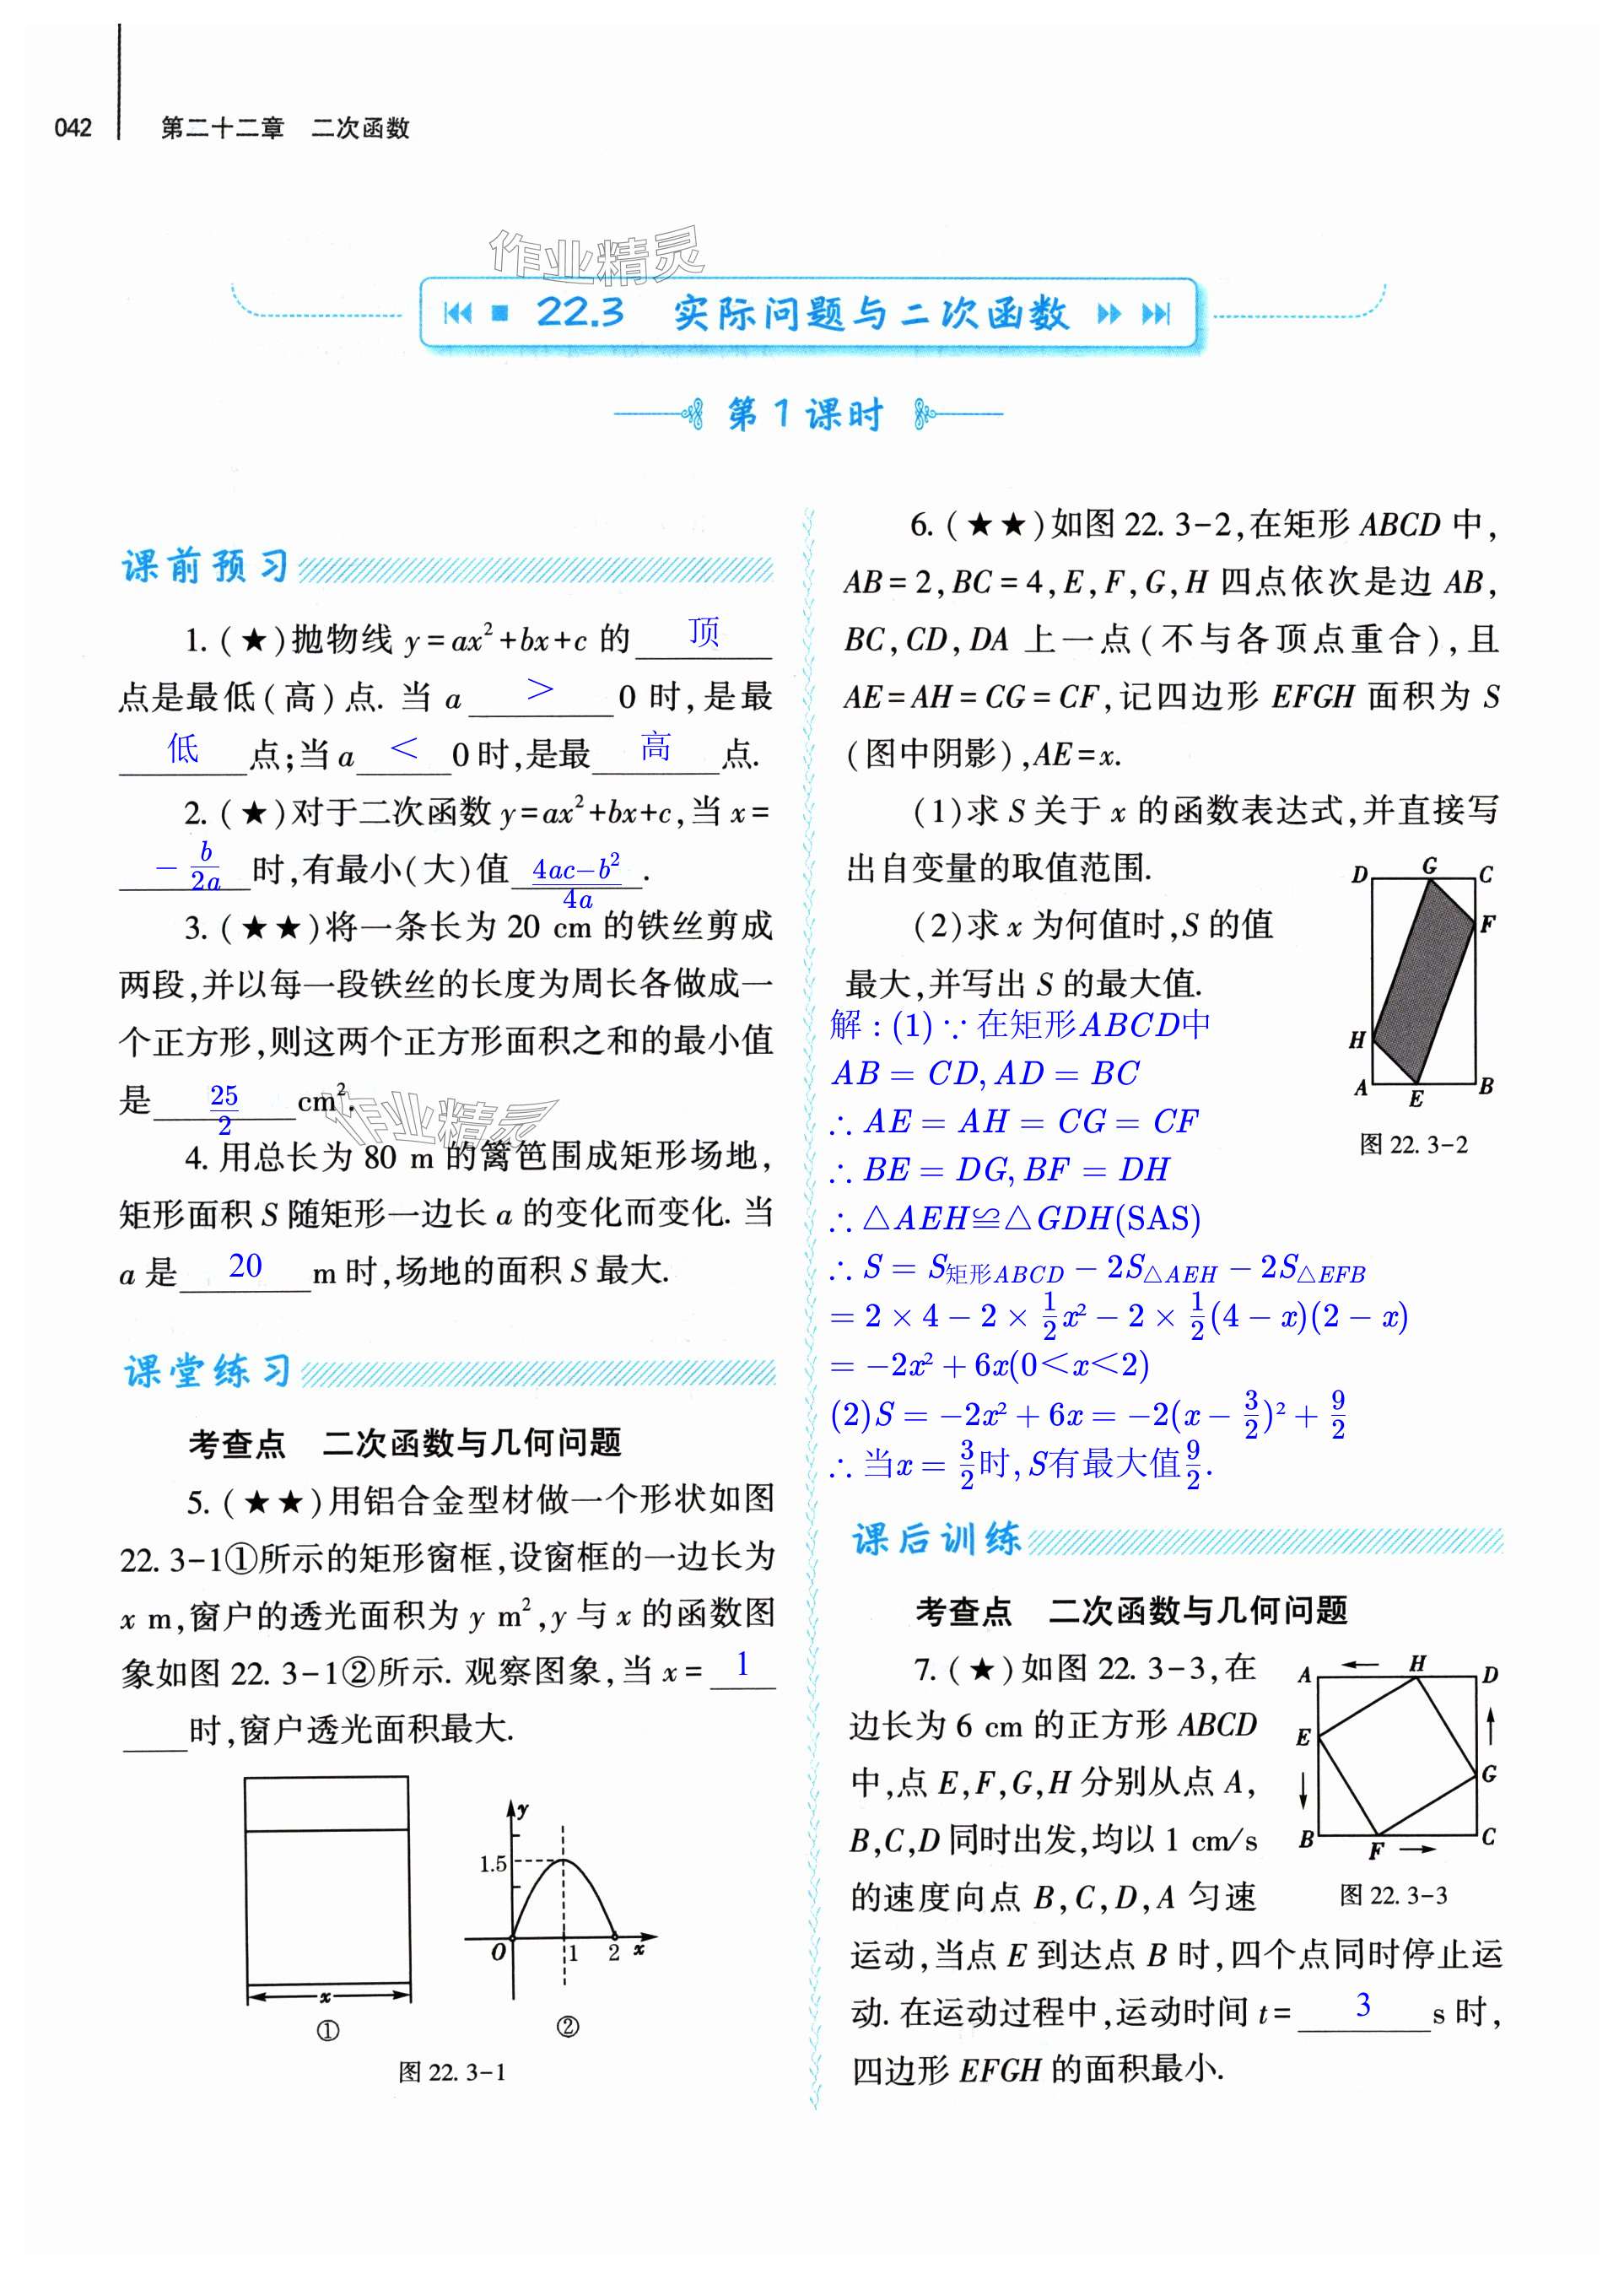 042 第二十二章 二次函数
作业精灵
22.3 实际问题与二次函数
第1课时
课前预习
1. (★)抛物线 y=ax²+bx+c 的 顶
点是最低(高)点. 当 a > 0 时,是最
低 点;当 a < 0 时,是最 高 点.
2. (★)对于二次函数 y=ax²+bx+c,当 x=
-b/2a 时,有最小(大)值 (4ac-b²)/4a .
3. (★★)将一条长为 20 cm 的铁丝剪成
两段,并以每一段铁丝的长度为周长各做成一
个正方形,则这两个正方形面积之和的最小值
是 25/2 cm².
作业精灵
4. 用总长为 80 m 的篱笆围成矩形场地,
矩形面积 S 随矩形一边长 a 的变化而变化. 当
a 是 20 m 时,场地的面积 S 最大.
课堂练习
考查点 二次函数与几何问题
5. (★★)用铝合金型材做一个形状如图
22.3-1①所示的矩形窗框,设窗框的一边长为
x m,窗户的透光面积为 y m²,y 与 x 的函数图
象如图 22.3-1②所示. 观察图象,当 x= 1
时,窗户透光面积最大.
y
1.5
O 1 2 x
x
① ②
图 22.3-1
6. (★★)如图 22.3-2,在矩形 ABCD 中,
AB=2,BC=4,E,F,G,H 四点依次是边 AB,
BC,CD,DA 上一点(不与各顶点重合),且
AE=AH=CG=CF,记四边形 EFGH 面积为 S
(图中阴影),AE=x.
(1)求 S 关于 x 的函数表达式,并直接写
出自变量的取值范围.
(2)求 x 为何值时,S 的值
最大,并写出 S 的最大值.
D G C
F
H
A E B
图 22.3-2
解:(1)∵在矩形ABCD中
AB=CD,AD=BC
∴AE=AH=CG=CF
∴BE=DG,BF=DH
∴△AEH≌△GDH(SAS)
∴S=S矩形ABCD-2S△AEH-2S△EFB
=2×4-2×1/2x²-2×1/2(4-x)(2-x)
=-2x²+6x(0<x<2)
(2)S=-2x²+6x=-2(x-3/2)²+9/2
∴当x=3/2时,S有最大值9/2.
课后训练
考查点 二次函数与几何问题
7. (★)如图 22.3-3,在
边长为 6 cm 的正方形 ABCD
中,点 E,F,G,H 分别从点 A,
B,C,D 同时出发,均以 1 cm/s
的速度向点 B,C,D,A 匀速
运动,当点 E 到达点 B 时,四个点同时停止运
动. 在运动过程中,运动时间 t= 3 s 时,
四边形 EFGH 的面积最小.
A H D
E
G
B F C
图 22.3-3